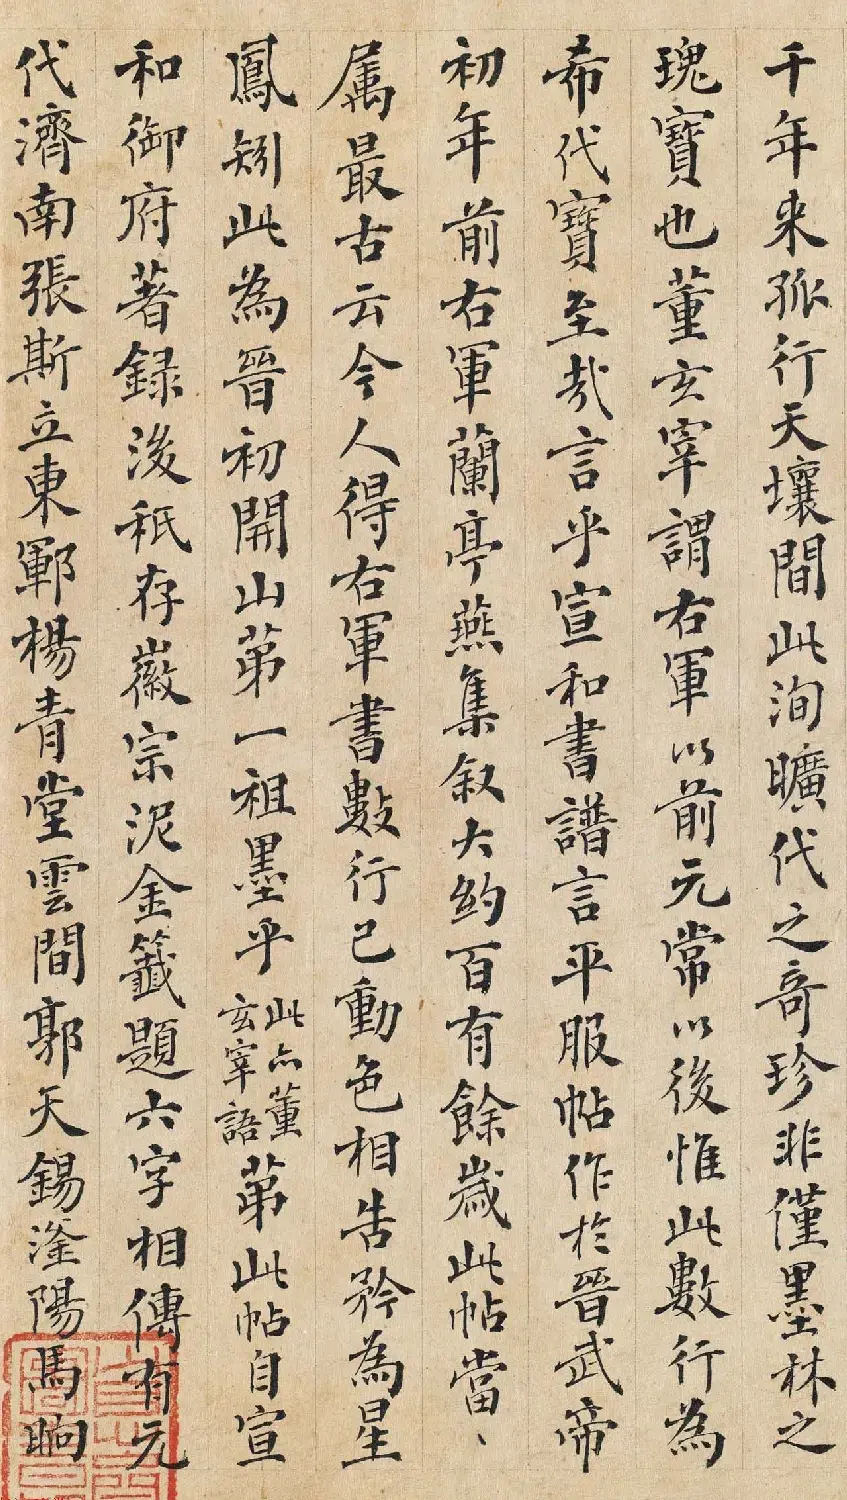 千年来孤行天壤間此洵曠代之奇珍非僅墨林之
瑰寶也董玄宰謂右軍以前元常以後惟此數行為
希代寶至哉言乎宣和書譜言平服帖作於晉武帝
初年前右軍蘭亭燕集叙大約百有餘歲此帖當〻
属最古云今人得右軍書數行已動色相告矜為星
鳳矧此為晉初開山苐一祖墨乎此亦董玄宰語苐此帖自宣
和御府著録後秖存徽宗泥金籤題六字相傳有元
代濟南張斯立東鄆楊青堂雲間郭天錫滏陽馬晌